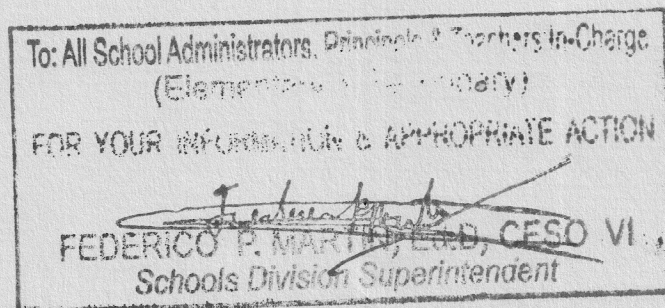 To: All School Administrators, Principals & Teachers In-Charge
(Elementary & Secondary)
FOR YOUR INFORMATION & APPROPRIATE ACTION
FEDERICO P. MARTIN, Ed.D, CESO VI
Schools Division Superintendent